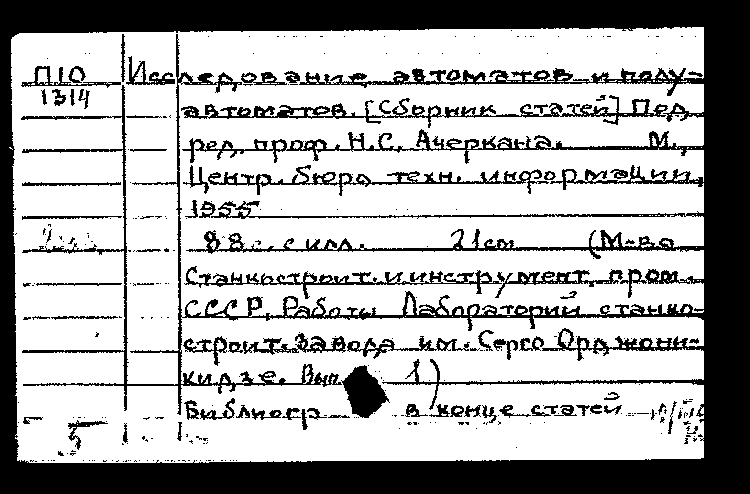 П10 Исследование автоматов и полу-
1314
автоматов. [Сборник статей] Под
ред. проф. Н.С. Ачеркана. М.,
Центр. бюро техн. информации,
1955
88с. с илл. 21см (М-во
Станкостроит. и инструмент. пром.
СССР. Работы Лабораторий станко-
строит. завода им. Серго Орджони-
кидзе. Вып. 1)
Библиогр в конце статей
5